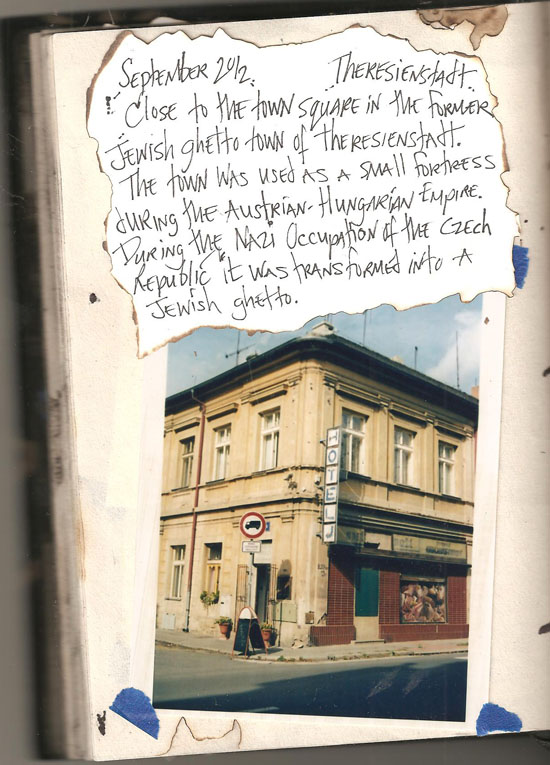 September 2012. Theresienstadt.
Close to the town square in the former
Jewish ghetto town of Theresienstadt.
The town was used as a small fortress
during the Austrian-Hungarian Empire.
During the Nazi Occupation of the Czech
Republic it was transformed into a
Jewish ghetto.
HOTEL